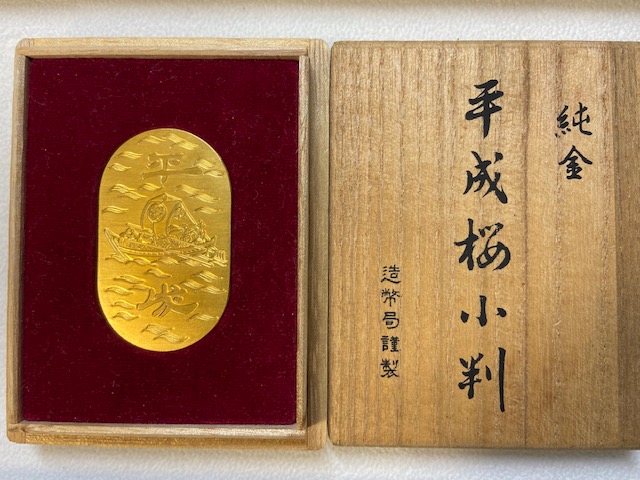 平
成
純金
平成桜小判
造幣局謹製